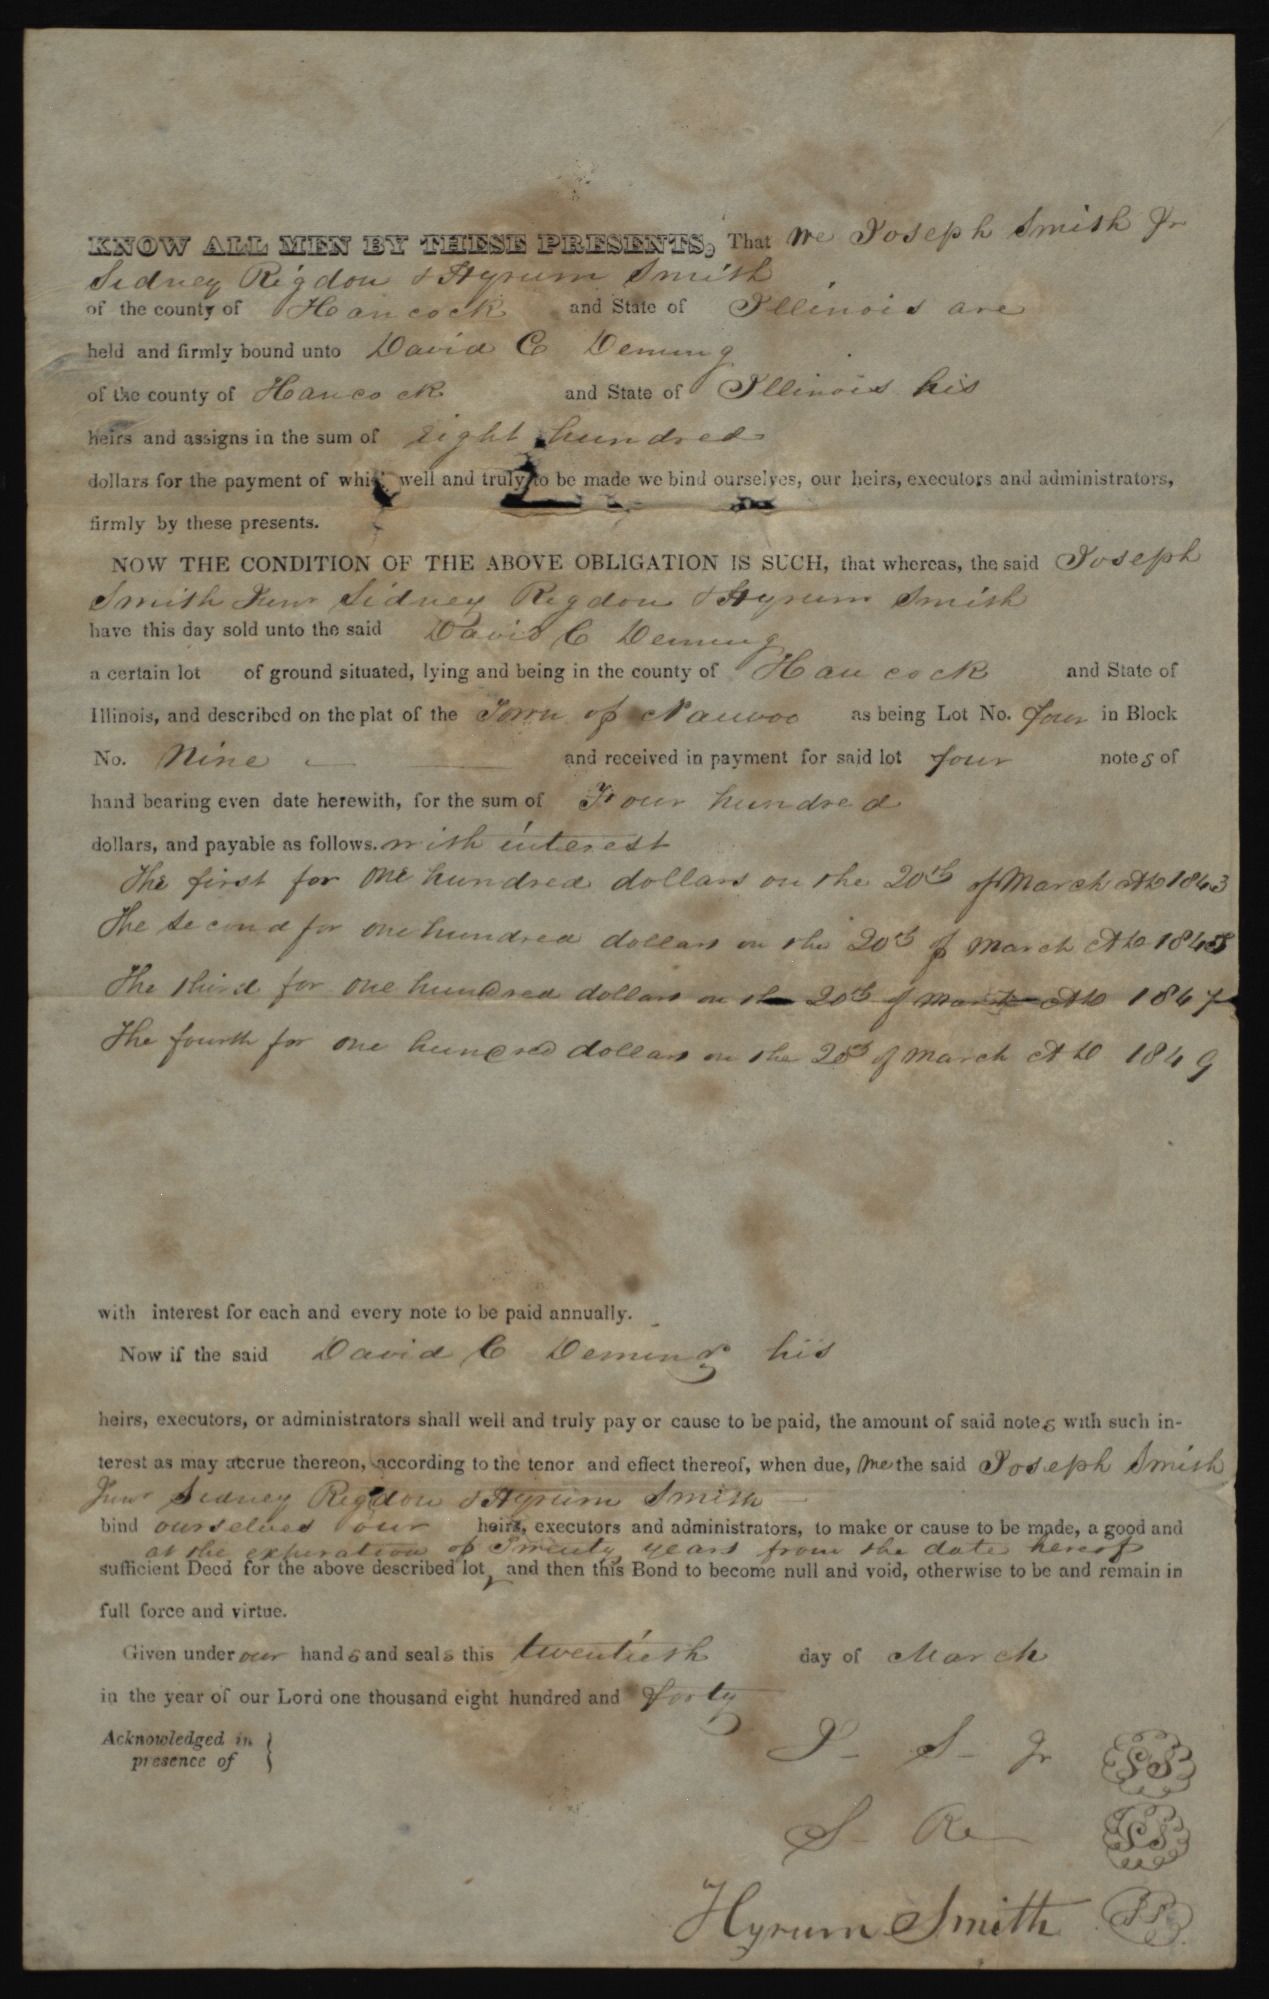 KNOW ALL MEN BY THESE PRESENTS, That We Joseph Smith Jr
Sidney Rigdon & Hyrum Smith
of the county of Hancock and State of Illinois are
held and firmly bound unto David C Deming
of the county of Hancock and State of Illinois his
heirs and assigns in the sum of eight hundred
dollars for the payment of which well and truly to be made we bind ourselves, our heirs, executors and administrators,
firmly by these presents.
NOW THE CONDITION OF THE ABOVE OBLIGATION IS SUCH, that whereas, the said Joseph
Smith Junr Sidney Rigdon & Hyrum Smith
have this day sold unto the said David C Deming
a certain lot of ground situated, lying and being in the county of Hancock and State of
Illinois, and described on the plat of the Town of Nauvoo as being Lot No. four in Block
No. Nine and received in payment for said lot four notes of
hand bearing even date herewith, for the sum of Four hundred
dollars, and payable as follows. with interest
The first for One hundred dollars on the 20th of March AD 1843
The second for one hundred dollars on the 20th of March AD 1845
The third for one hundred dollars on the 20th of March AD 1847
The fourth for one hundred dollars on the 20th of March AD 1849
with interest for each and every note to be paid annually.
Now if the said David C Deming his
heirs, executors, or administrators shall well and truly pay or cause to be paid, the amount of said notes with such in-
terest as may accrue thereon, according to the tenor and effect thereof, when due, We the said Joseph Smith
Junr Sidney Rigdon & Hyrum Smith
bind ourselves our heirs, executors and administrators, to make or cause to be made, a good and
at the expiration of Twenty years from the date hereof
sufficient Deed for the above described lot, and then this Bond to become null and void, otherwise to be and remain in
full force and virtue.
Given under our hands and seals this twentieth day of March
in the year of our Lord one thousand eight hundred and forty
Acknowledged in
presence of }
J- S- Jr LS
S- R LS
Hyrum Smith LS